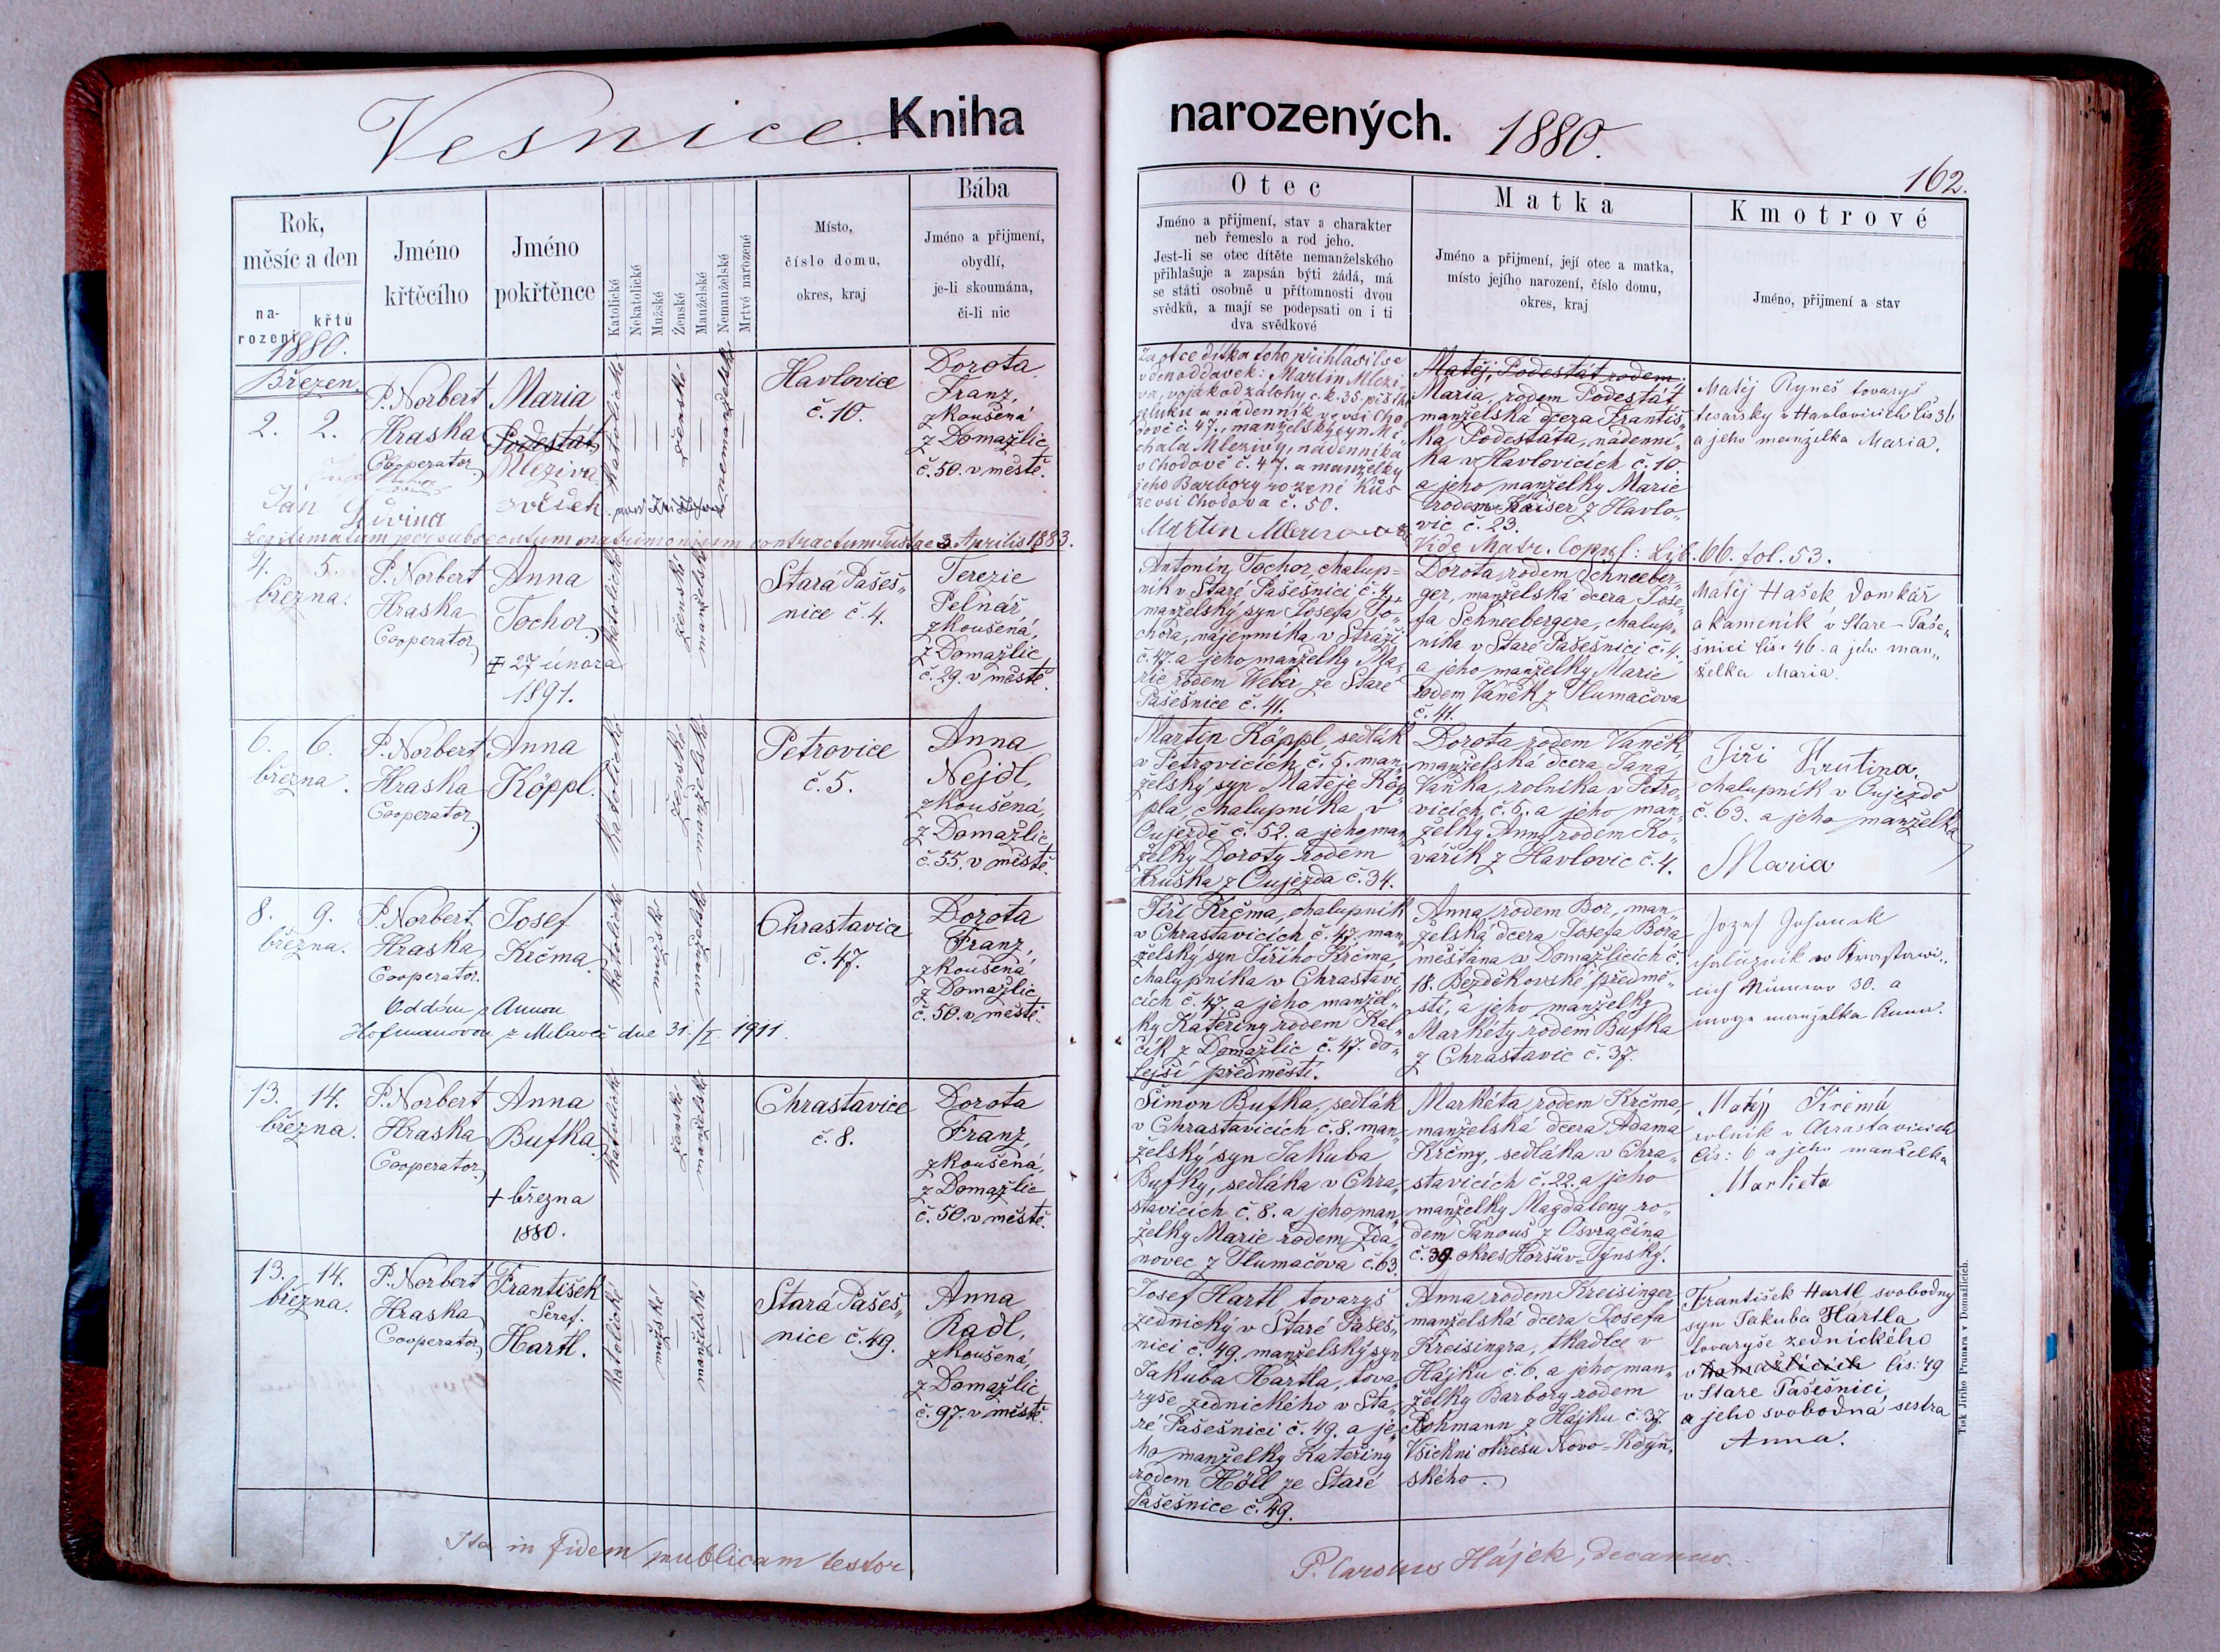 Vesnice. Kniha
Rok,
měsíc a den
na-
rození
křtu
Jméno
křtěcího
Jméno
pokřtěnce
Katolické
Nekatolické
Mužské
Ženské
Manželské
Nemanželské
Mrtvě narozené
Místo,
číslo domu,
okres, kraj
Bába
Jméno a přijmení,
obydlí,
je-li skoumána,
či-li nic
1880.
Březen.
2. 2.
P. Norbert
Hraska
Cooperator
Maria
Podestát
Mleziva
katolické
ženské
nemanželské
Havlovice
č. 10.
Dorota
Franz,
zkoušená
z Domažlic
č. 50. v městě.
Jan
svědek
Legitimatum per subsecutum matrimonium contractum Tustae 3. Aprilis 1883.
4. 5.
března.
P. Norbert
Hraska
Cooperator
Anna
Tochor
+ 27 února
1891.
katolické
ženské
manželské
Stará Pašeš„
nice č. 4.
Terezie
Pelnář
zkoušená,
z Domažlic
č. 29. v městě.
6. 6.
března.
P. Norbert
Hraska
Cooperator
Anna
Köppl.
katolické
ženské
manželské
Petrovice
č. 5.
Anna
Nejdl,
zkoušená,
z Domažlic
č. 55. v městě.
8. 9.
března.
P. Norbert
Hraska
Cooperator.
Josef
Krčma
katolické
mužské
manželské
Chrastavice
č. 47.
Dorota
Franz,
zkoušená
z Domažlic
č. 50. v městě.
Oddán s Annou
Hofmanovou z Milaveč dne 31./I. 1911.
13. 14.
března.
P. Norbert
Hraska
Cooperator
Anna
Bufka
+ března
1880.
katolické
ženské
manželské
Chrastavice
č. 8.
Dorota
Franz,
zkoušená,
z Domažlic
č. 50. v městě.
13. 14.
března.
P. Norbert
Hraska
Cooperator
František
Seraf.
Hartl.
katolické
mužské
manželské
Stará Pašeš„
nice č. 49.
Anna
Radl,
zkoušená,
z Domažlic
č. 97. v městě.
Ita in fidem publicam testor
narozených. 1880.
162.
Otec
Jméno a přijmení, stav a charakter
neb řemeslo a rod jeho.
Jest-li se otec dítěte nemanželského
přihlašuje a zapsán býti žádá, má
se státi osobně u přítomnosti dvou
svědků, a mají se podepsati on i ti
dva svědkové
Matka
Jméno a přijmení, její otec a matka,
místo jejího narození, číslo domu,
okres, kraj
Kmotrové
Jméno, přijmení a stav
Za otce dítka toho přihlásil se
v den oddavek: Martin Mlezi„
va, voják od zálohy c. k. 35. pěšího
pluku a nádenník ve vsi Cho„
dově č. 47., manželský syn Mi„
chala Mlezivy, nádenníka
v Chodově č. 47. a manželky
jeho Barbory rozené Kůs
ze vsi Chodova č. 50.
Martin Mleziva
Matěj, Podestát rodem
Maria, rodem Podestát
manželská dcera Františ„
ka Podestáta, nádenní„
ka v Havlovicích č. 10.
a jeho manželky Marie
rodem Kaiser z Havlo„
vic č. 23.
Vide Matr. Copul: Lib. 66. fol. 53.
Matěj Ryneš tovaryš
tesařsky v Havlovicích čis 36
a jeho manželka Maria.
Antonín Tochor, chalup=
ník v Staré Pašešnici č. 4.,
manželský syn Josefa To„
chora, nájemníka v Stráži
č. 47. a jeho manželky Ma„
rie rodem Weber ze Staré
Pašešnice č. 41.
Dorota, rodem Schneeber„
ger, manželská dcera Jose„
fa Schneebergera, chalup„
níka v Staré Pašešnici č. 4.
a jeho manželky Marie
rodem Vaněk z Tlumačova
č. 41.
Matěj Hašek domkář
a kameník v Stare-Paše„
šnici čis. 46. a jeho man„
želka Maria.
Martin Köppl, sedlák
v Petrovicích č. 5. man„
želský syn Matěje Köp„
pla, chalupníka v
Oujezdě č. 52. a jeho man„
želky Doroty rodem
Hruška z Oujezda č. 34.
Dorota, rodem Vaněk,
manželská dcera Jana
Vaňka, rolníka v Petro„
vicích č. 5. a jeho man„
želky Anny rodem Ko„
vařík z Havlovic č. 4.
Jiří Krutina,
chalupník v Oujezdě
č. 63. a jeho manželka
Maria
Jiří Krčma, chalupník
v Chrastavicích č. 47. man„
želský syn Jiřího Krčma,
chalupníka v Chrastavi„
cích č. 47. a jeho manžel„
ky Kateřiny rodem Kal„
čík z Domažlic č. 47. do„
lejší předměstí.
Anna, rodem Bor, man„
želská dcera Josefa Bora
měšťana v Domažlicích č.
18. Bezděkovské předmě„
stí, a jeho manželky
Markéty rodem Bufka
z Chrastavic č. 37.
30. a
manželka Anna.
Šimon Bufka, sedlák
v Chrastavicích č. 8. man„
želský syn Jakuba
Bufky, sedláka v Chra„
stavicích č. 8. a jeho man„
želky Marie rodem Žda„
novec z Tlumačova č. 63.
Markéta, rodem Krčma,
manželská dcera Adama
Krčmy, sedláka v Chra„
stavicích č. 22. a jeho
manželky Magdaleny ro„
dem Janouš z Osvračína
č. 39. okres Horšův-Týnský.
Matěj Krčma
rolník v Chrastavicich
čis: 6 a jeho manželka
Markieta
Josef Hartl tovaryš
zednický v Staré Pašeš„
nici č. 49. manželský syn
Jakuba Hartla, tova„
ryše zednického v Sta„
ré Pašešnici č. 49. a je„
ho manželky Kateřiny
rodem Höll ze Staré
Pašešnice č. 49.
Anna, rodem Kreisinger
manželská dcera Josefa
Kreisingra, tkadlce v
Hájku č. 6. a jeho man„
želky Barbory rodem
Pohmann z Hájku č. 37.
Všickni okresu Novo-Kdyň„
ského.
František Hartl svobodny
syn Jakuba Hartla
tovaryše zednického
v Domažlicich čis: 49
v Stare Pašešnici
a jeho svobodná sestra
Anna.
Tisk Jiřího Prunara v Domažlicích.
P. Hájek, decanus